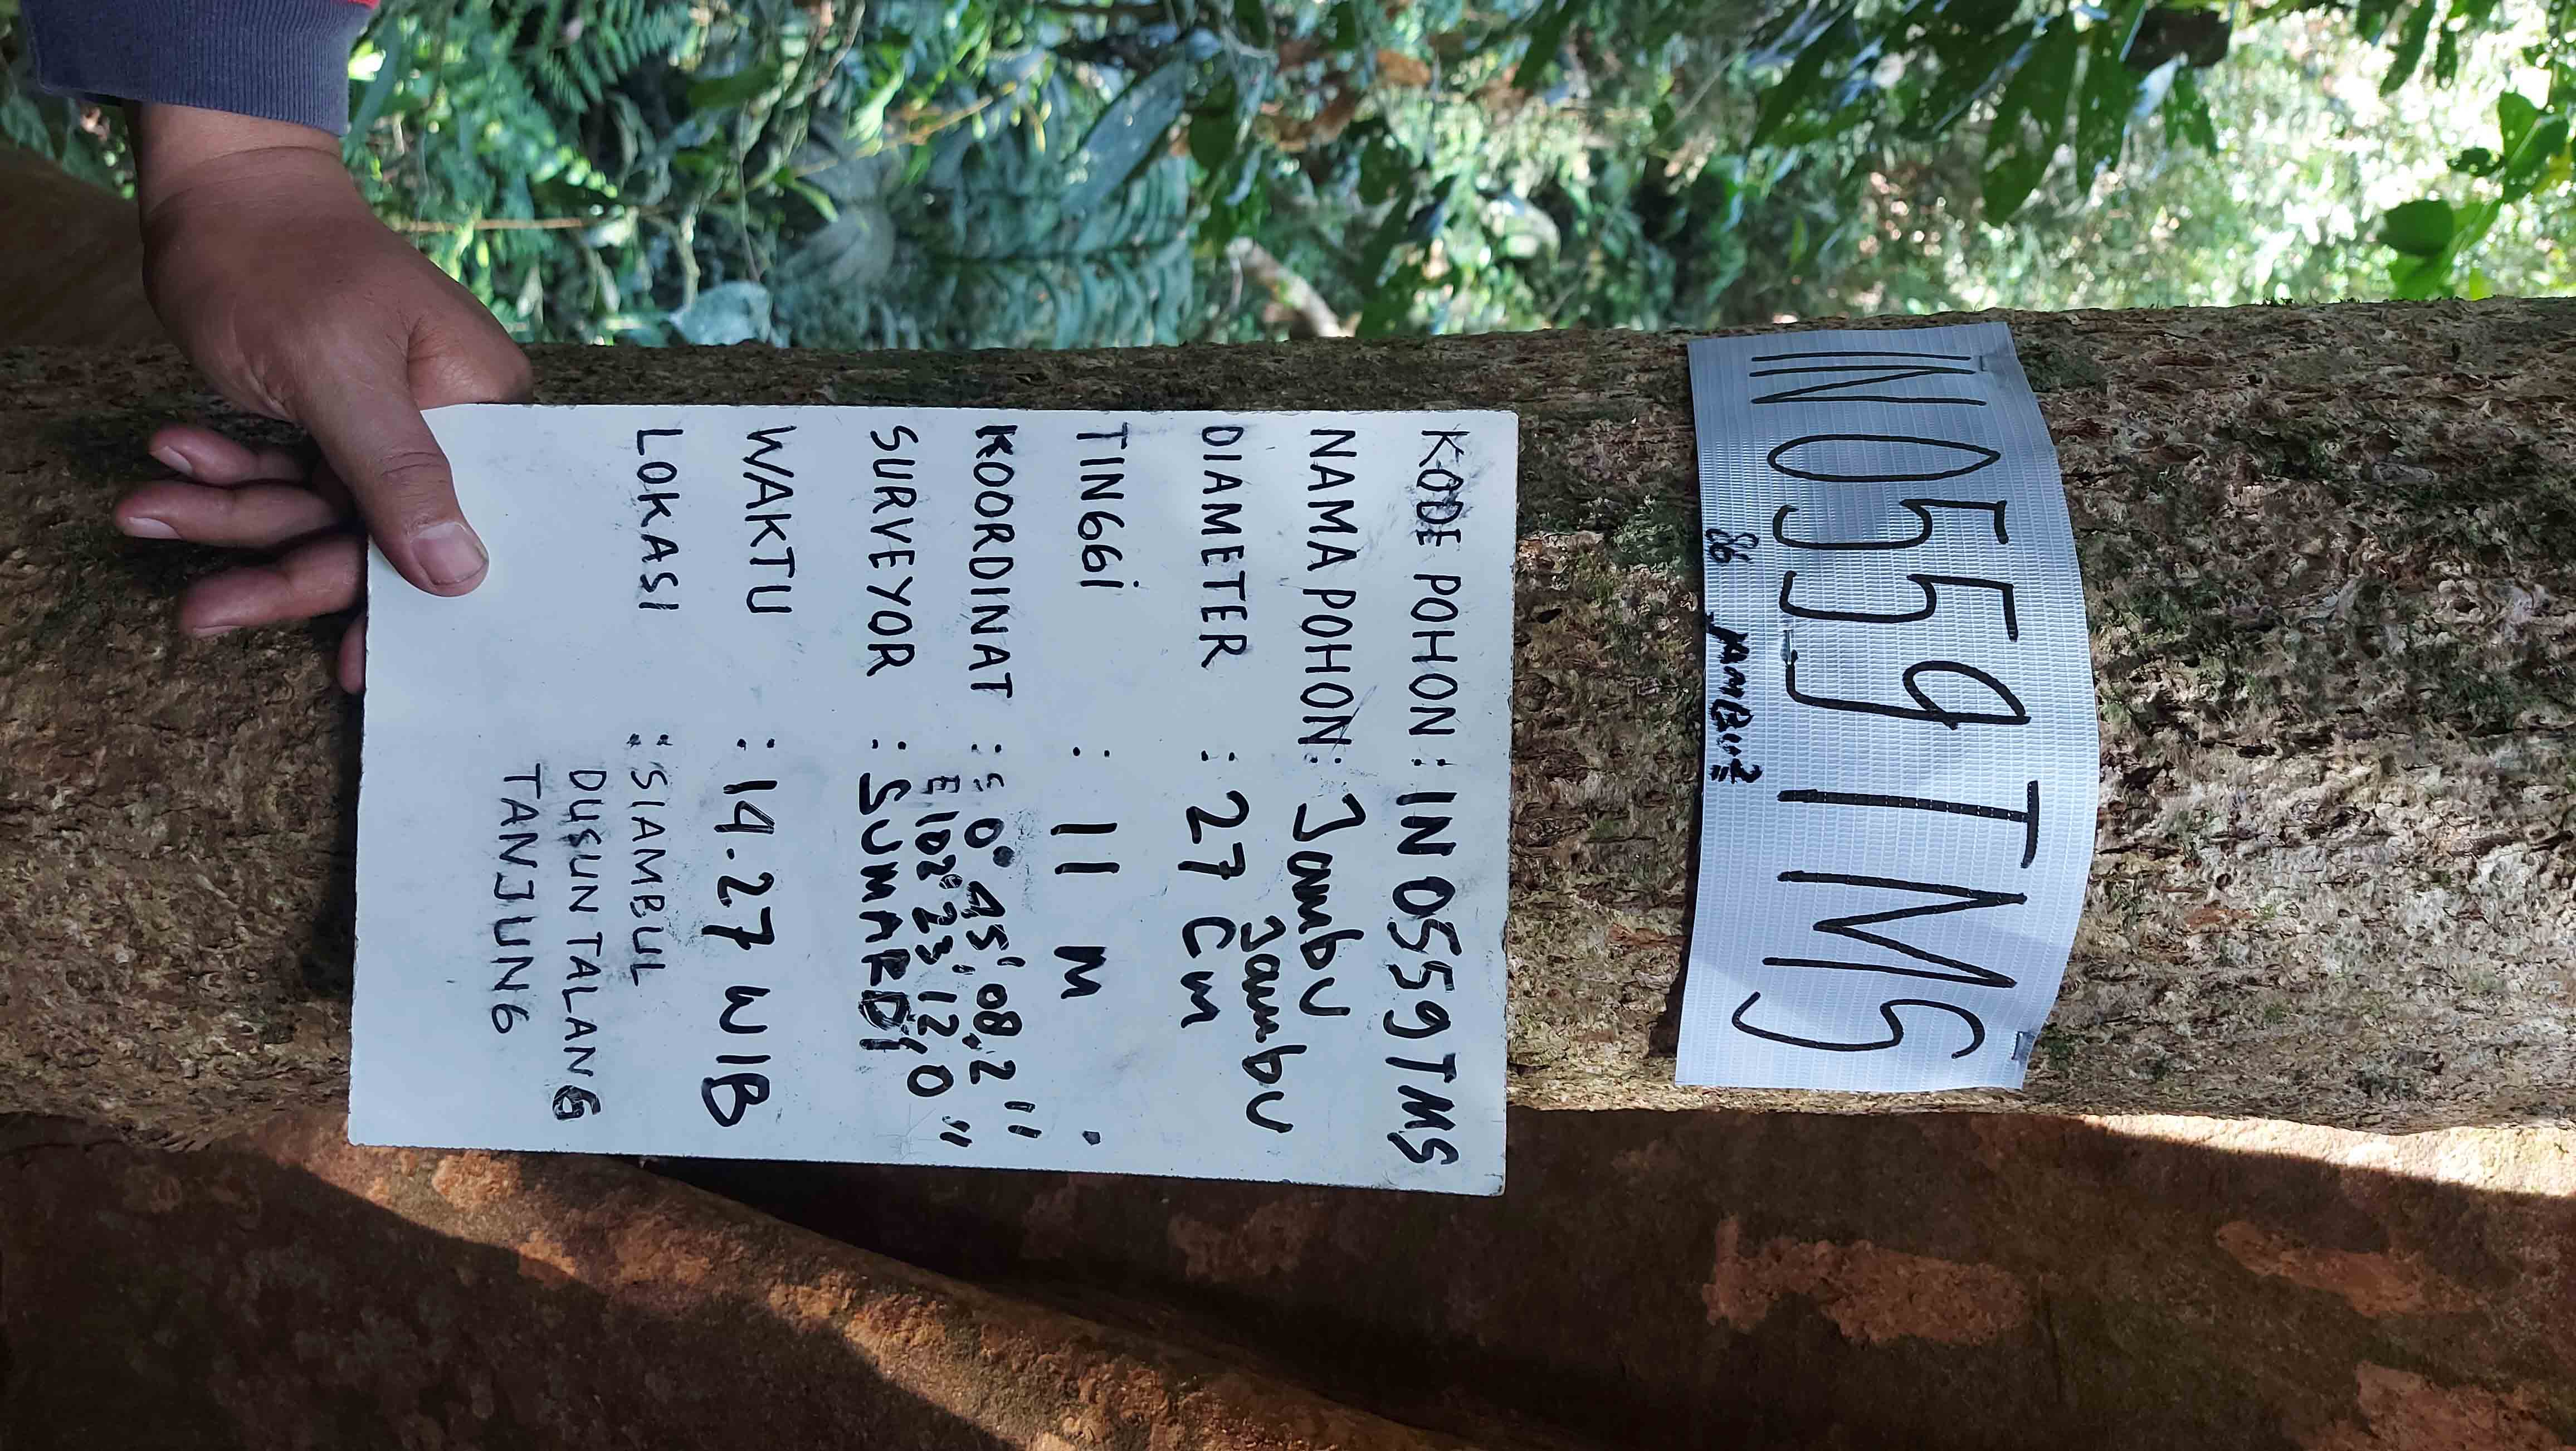 IN0559TMS
86 JAMBU2
KODE POHON : IN0559TMS
NAMA POHON : Jambu
Jambu
DIAMETER : 27 Cm
TINGGi : 11 M
KOORDINAT : S 0° 45' 08,2"
E 102° 23' 12,0"
SURVEYOR : SUMARDi
WAKTU : 14.27 WIB
LOKASI : SIAMBUL
DUSUN TALANG
TANJUNG